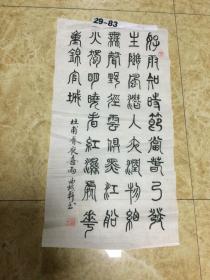 29-83
好雨知時節當春乃發
生隨風潛入夜潤物細
無聲野徑雲俱黑江船
火獨明曉看紅濕處花
重錦官城
杜甫春夜喜雨